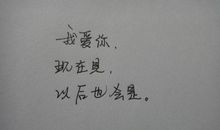 我爱你，
现在是，
以后也会是。